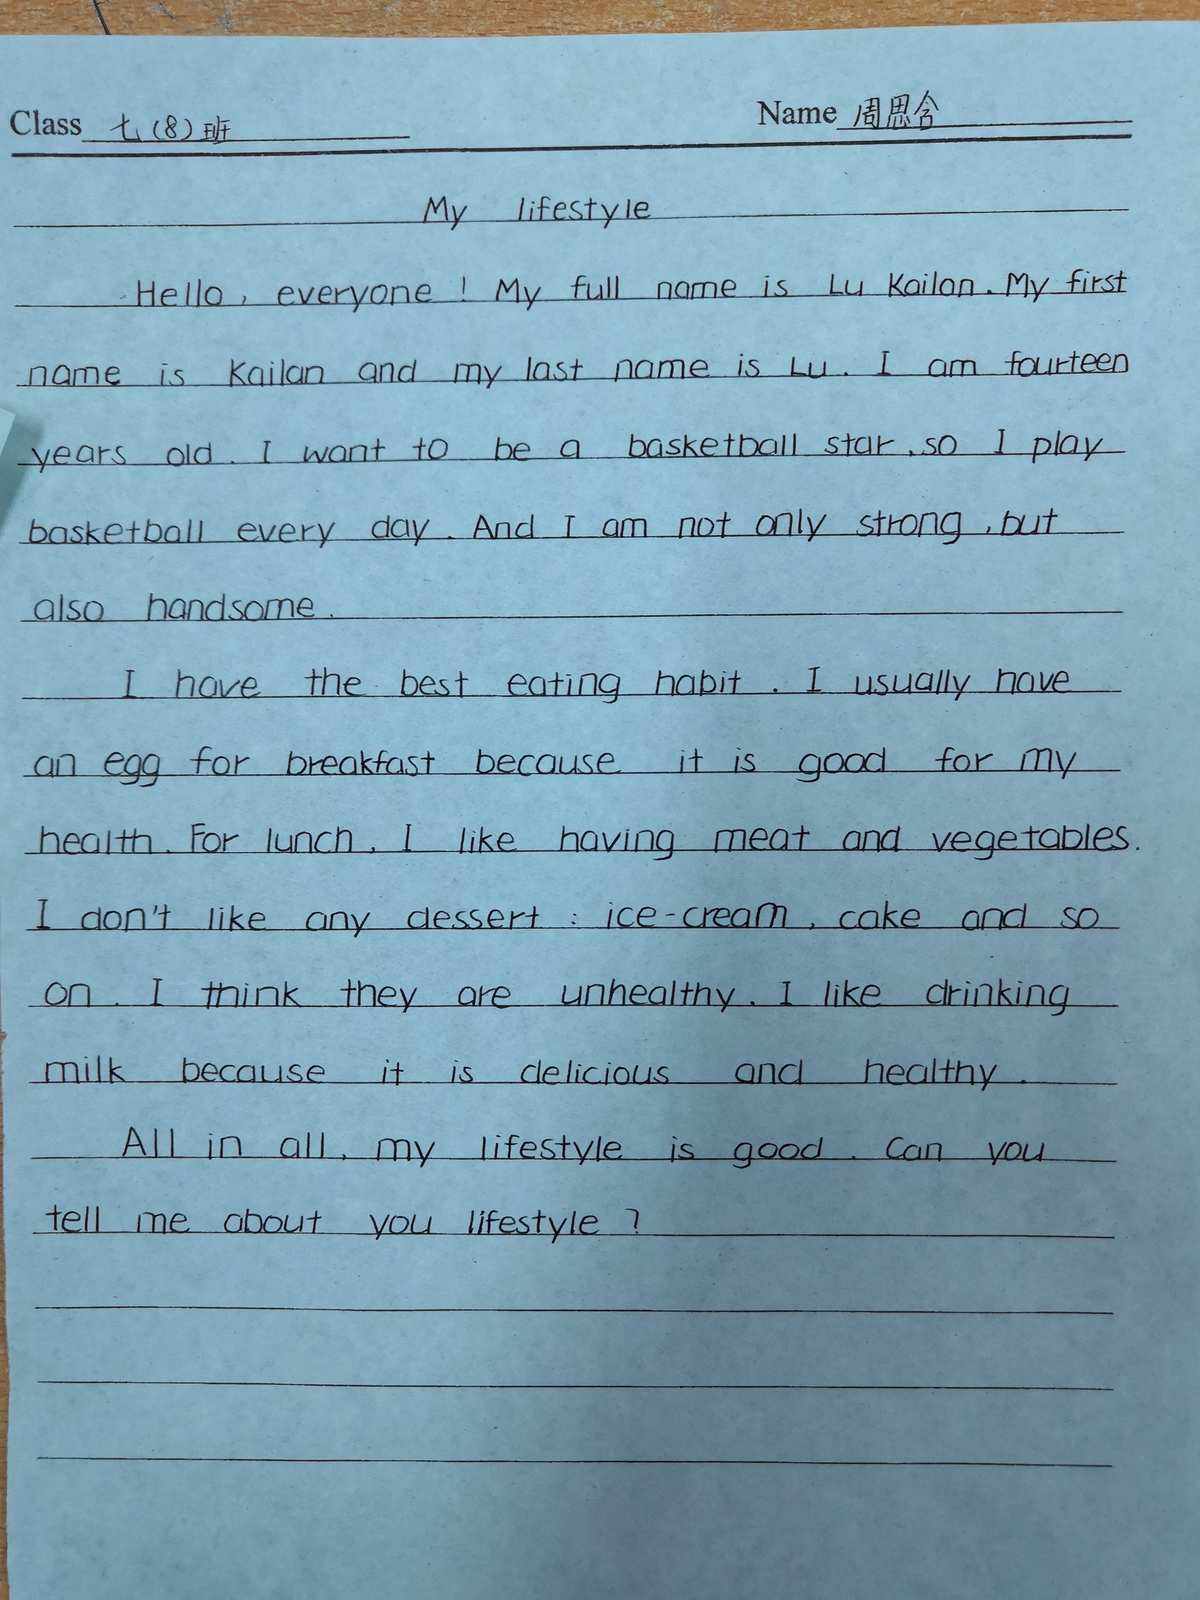 Class 七(8)班 Name 周思含
My lifestyle
Hello, everyone! My full name is Lu Kailan. My first
name is Kailan and my last name is Lu. I am fourteen
years old. I want to be a basketball star, so I play
basketball every day. And I am not only strong, but
also handsome.
I have the best eating habit. I usually have
an egg for breakfast because it is good for my
health. For lunch, I like having meat and vegetables.
I don't like any dessert: ice-cream, cake and so
on. I think they are unhealthy. I like drinking
milk because it is delicious and healthy.
All in all, my lifestyle is good. Can you
tell me about you lifestyle?